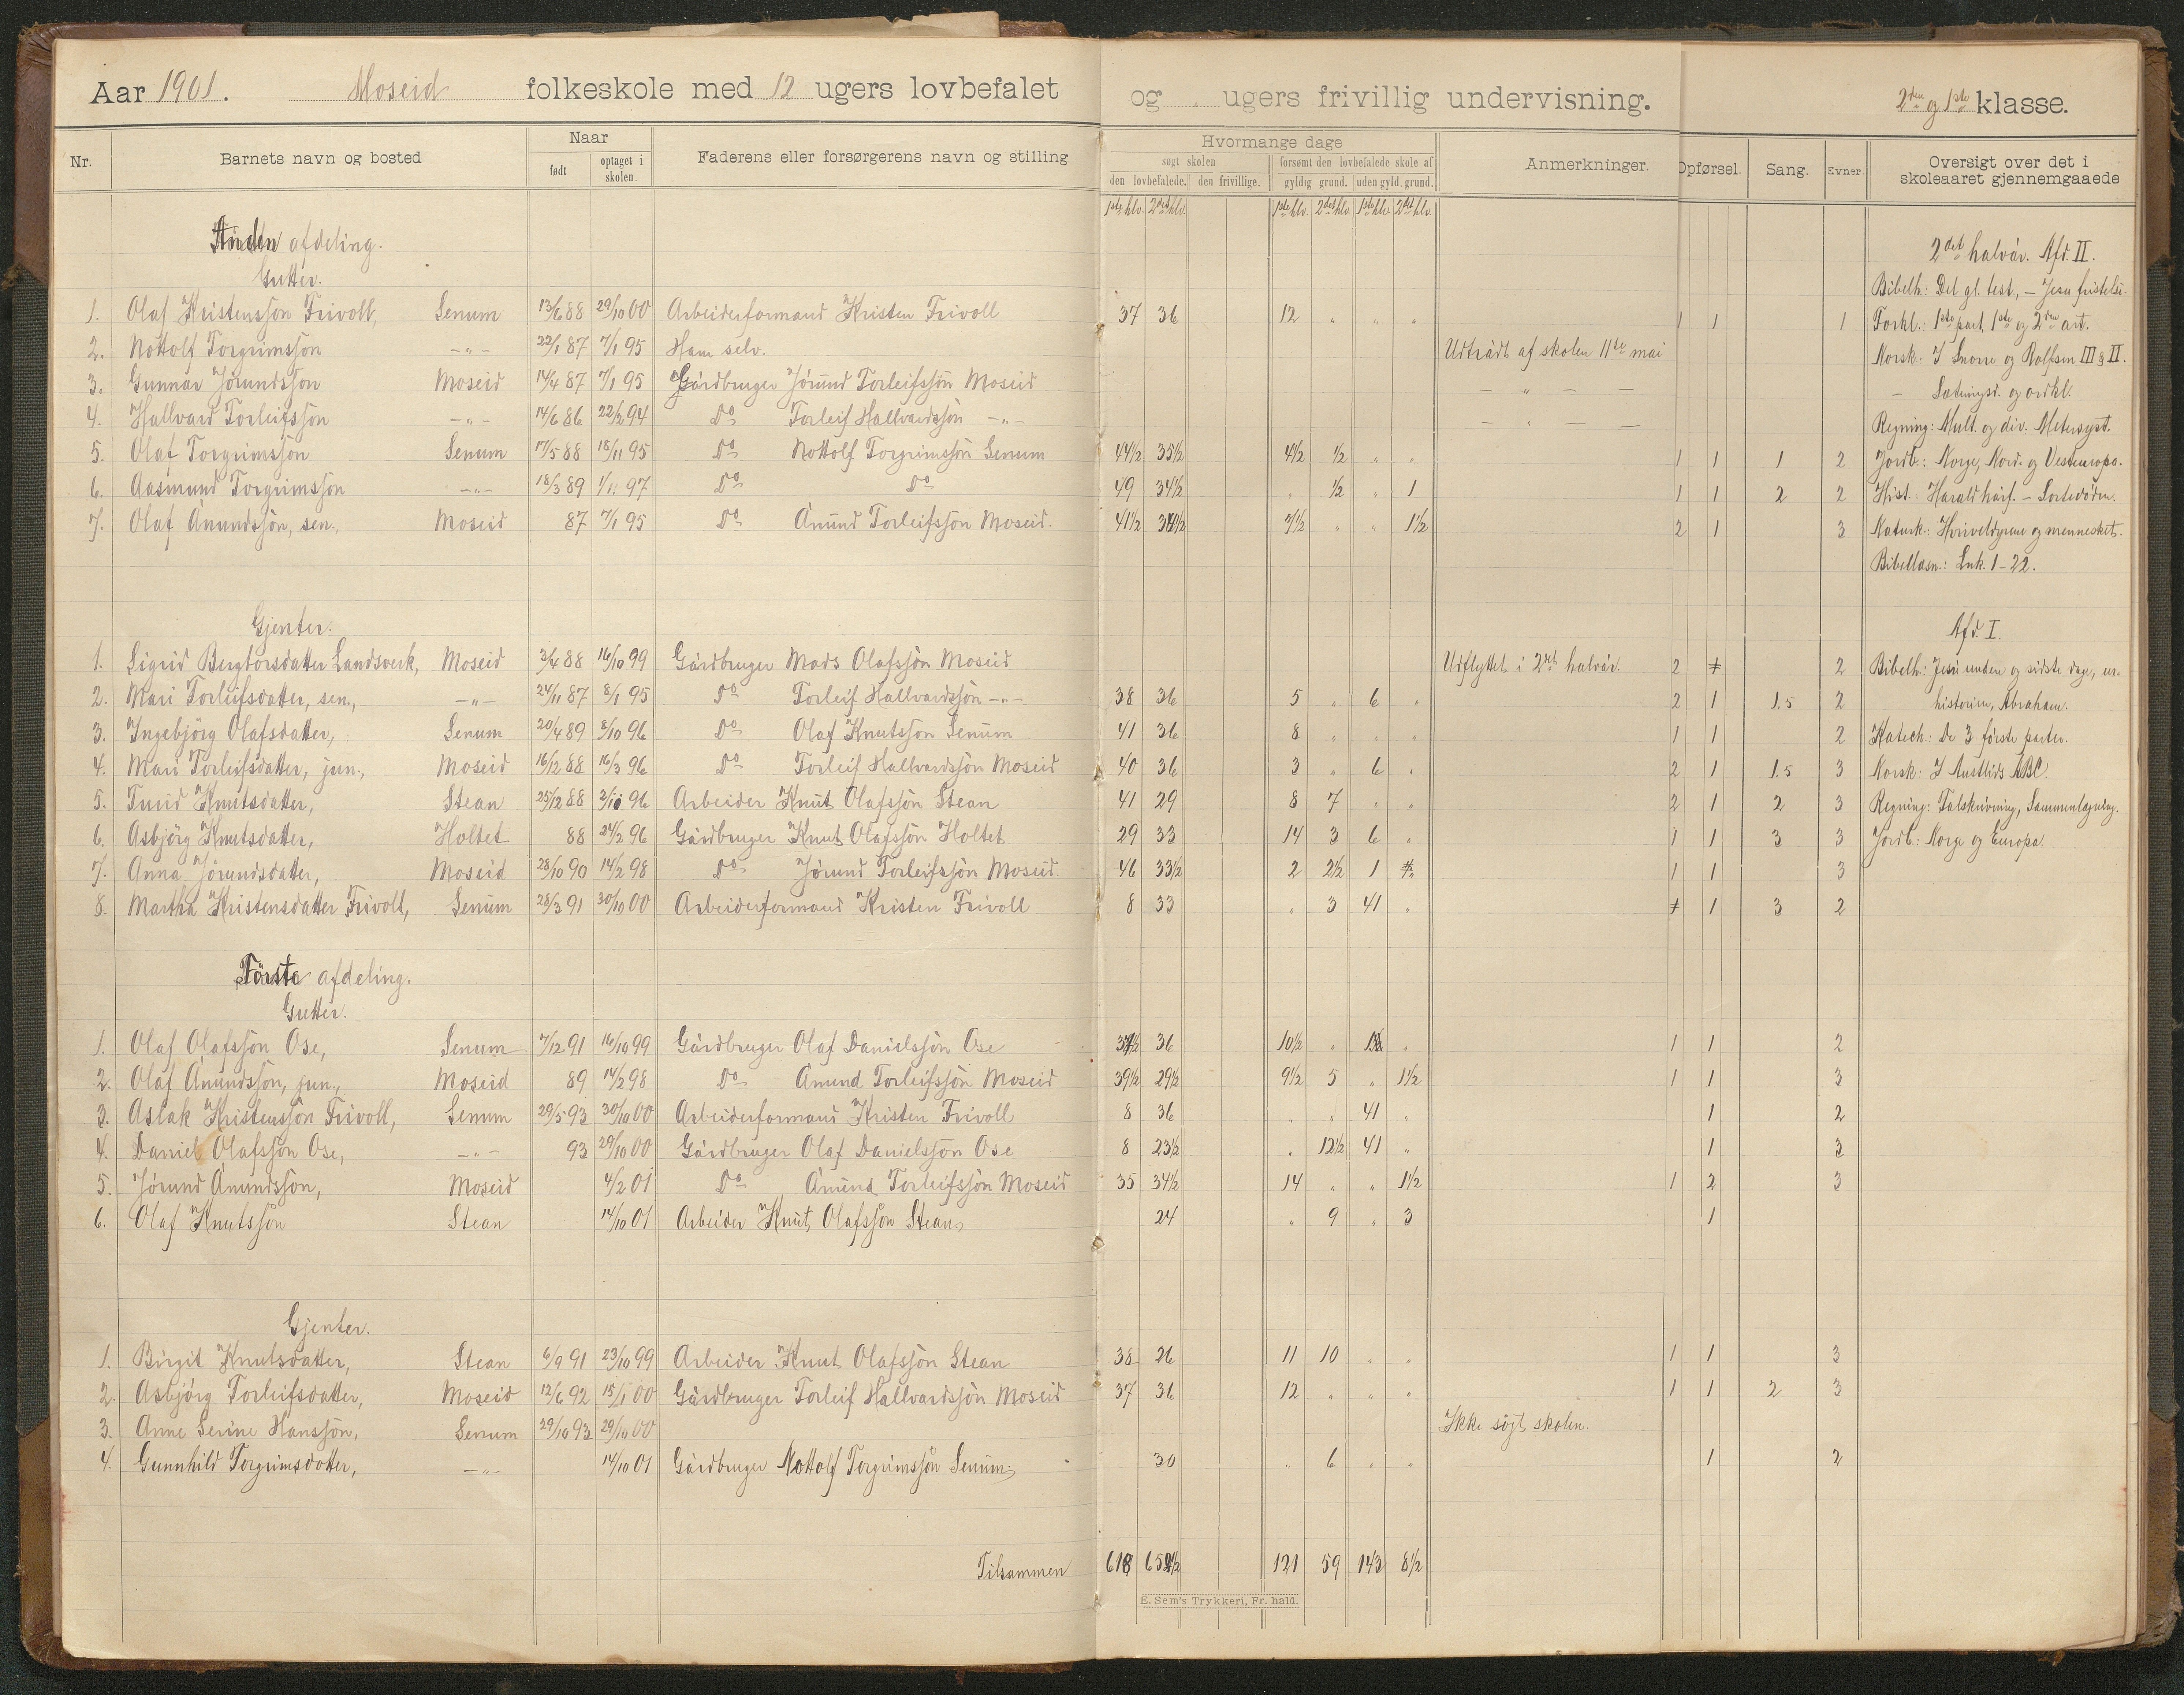 Aar 1901. Moseid folkeskole med 12 ugers lovbefalet og „ ugers frivillig undervisning. 2den og 1ste klasse.
Nr. Barnets navn og bosted Naar født optaget i skolen. Faderens eller forsørgerens navn og stilling Hvormange dage søgt skolen den lovbefalede. den frivillige. forsømt den lovbefalede skole af gyldig grund. uden gyld. grund. Anmerkninger. Opførsel. Sang. Evner Oversigt over det i skoleaaret gjennemgaaede
1ste hlv. 2det hlv. 1ste hlv. 2det hlv. 1ste hlv. 2det hlv.
Anden afdeling. 2det halvår. Afd. II.
Gutter. Bibelh.: Det gl. test., – Jesu fristelse.
1. Olaf Kristensson Frivoll, Senum 13/6 88 29/10 00 Arbeiderformand Kristen Frivoll 37 36 12 „ „ „ 1 1 1 Forkl.: 1ste part, 1ste og 2den art.
2. Nottolf Torgrimsson –„– 22/1 87 7/1 95 Ham selv. Udtrådt af skolen 11te mai Norsk: I Snorre og Rolfsen III & II.
3. Gunnar Jörundsson Moseid 14/4 87 7/1 95 Gårdbruger Jörund Torleifssön Moseid – „ – – – Sætningsl. og ordkl.
4. Hallvard Torleifsson –„– 14/6 86 22/2 94 Do Torleif Hallvardssön –„– – „ – – Regning: Mult. og div. Metersyst.
5. Olaf Torgrimsson Senum 17/5 88 18/11 95 Do Nottolf Torgrimssön Senum 44½ 35½ 4½ ½ „ „ 1 1 1 2 Jordb.: Norge, Nord. og Vesteuropa.
6. Aasmund Torgrimsson –„– 18/3 89 1/11 97 Do Do 49 34½ „ ½ „ 1 1 1 2 2 Hist.: Harald hårf. – Sortedöden.
7. Olaf Ånundsson, sen., Moseid 87 7/1 95 Do Ånund Torleifsson Moseid. 41½ 34½ 7½ „ „ 1½ 2 1 3 Naturk.: Hvirveldyrene og mennesket.
Bibellæsn.: Luk. 1–22.
Gjenter. Afd. I.
1. Sigrid Bergtorsdatter Landsverk, Moseid 3/4 88 16/10 99 Gårdbruger Mads Olafssön Moseid Udflyttet i 2det halvår. 2 2 Bibelh.: Jesu undere og sidste dage, ur-
2. Mari Torleifsdatter, sen., –„– 24/11 87 8/1 95 Do Torleif Hallvardssön –„– 38 36 5 „ 6 „ 2 1 1.5 2 historien, Abraham.
3. Ingebjörg Olafsdatter, Senum 20/4 89 8/10 96 Do Olaf Knutsson Senum 41 36 8 „ „ „ 1 1 2 Katech.: De 3 förste parter.
4. Mari Torleifsdatter, jun., Moseid 16/12 88 16/3 96 Do Torleif Hallvardssön Moseid 40 36 3 „ 6 „ 2 1 1.5 3 Norsk: I Austlids ABC.
5. Turid Knutsdatter, Stean 25/12 88 2/10 96 Arbeider Knut Olafssön Stean 41 29 8 7 „ „ 2 1 2 3 Regning: Talskrivning, Sammenlægning.
6. Asbjörg Knutsdatter, Holtet 88 24/2 96 Gårdbruger Knut Olafssön Holtet 29 33 14 3 6 „ 1 1 3 3 Jordb.: Norge og Europa.
7. Anna Jörundsdatter, Moseid 28/10 90 14/2 98 Do Jörund Torleifssön Moseid. 46 33½ 2 2½ 1 „ 1 1 3
8. Martha Kristensdatter Frivoll, Senum 28/3 91 30/10 00 Arbeiderformand Kristen Frivoll 8 33 „ 3 41 „ 1 3 2
Förste afdeling.
Gutter.
1. Olaf Olafsson Ose, Senum 7/12 91 16/10 99 Gårdbruger Olaf Danielssön Ose 37½ 36 10½ „ „ 1 1 2
2. Olaf Ånundsson, jun., Moseid 89 14/2 98 Do Ånund Torleifssön Moseid 39½ 29½ 9½ 5 „ 1½ 1 1 3
3. Aslak Kristensson Frivoll, Senum 29/5 93 30/10 00 Arbeiderformand Kristen Frivoll 8 36 „ „ 41 „ 1 2
4. Daniel Olafsson Ose, –„– 93 29/10 00 Gårdbruger Olaf Danielsson Ose 8 23½ „ 12½ 41 „ 1 3
5. Jörund Ånundsson, Moseid 4/2 01 Do Ånund Torleifssön Moseid 35 34½ 14 „ „ 1½ 1 2 3
6. Olaf Knutsson Stean 14/10 01 Arbeider Knut Olafsson Stean 24 „ 9 „ 3 1
Gjenter.
1. Birgit Knutsdatter, Stean 6/9 91 23/10 99 Arbeider Knut Olafssön Stean 38 26 11 10 „ „ 1 1 3
2. Asbjörg Torleifsdatter, Moseid 12/6 92 15/1 00 Gårdbruger Torleif Hallvardssön Moseid 37 36 12 „ „ „ 1 1 2 3
3. Anne Serine Hanssön, Senum 29/10 93 29/10 00 Ikke sögt skolen.
4. Gunnhild Torgrimsdatter, –„– 14/10 01 Gårdbruger Nottolf Torgrimssön Senum. 30 „ 6 „ „ 1 2
Tilsammen 618 65½ 121 59 143 8½
E. Sem's Trykkeri, Fr. hald.